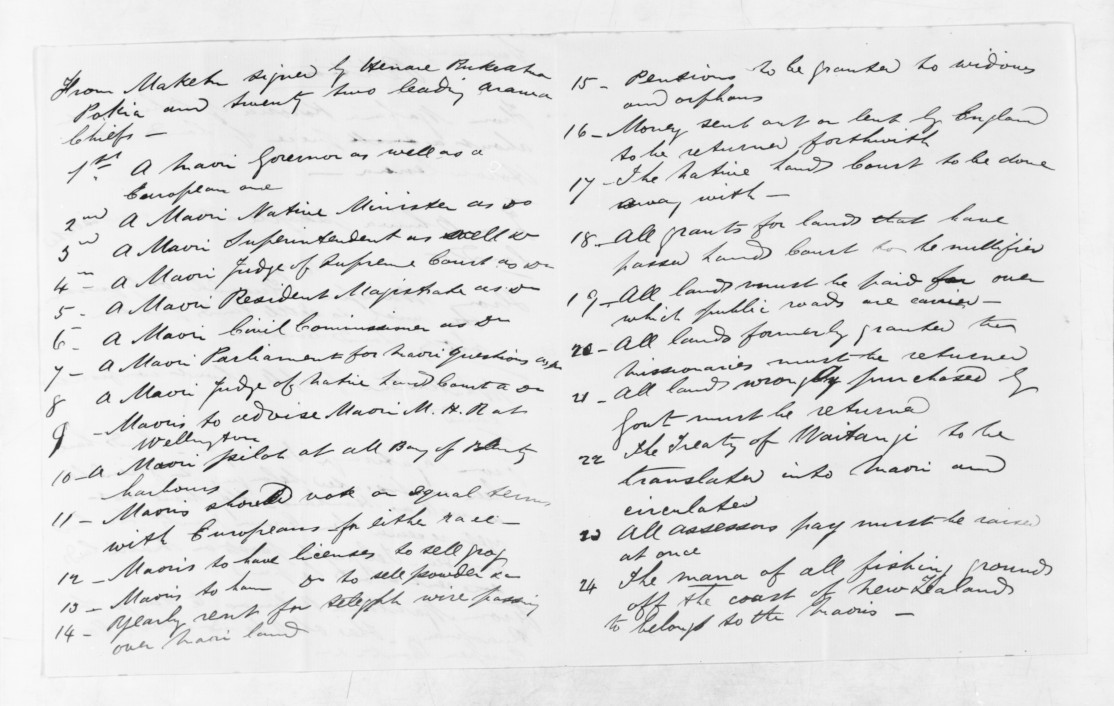 From Maketu signed by Henare Pukuatua
Pokia and twenty two leading Arawa
Chiefs —
1st A Maori Governor as well as a
European one
2nd A Maori Native Minister as do
3rd A Maori Superintendent as well do
4th A Maori Judge of Supreme Court as do
5 - A Maori Resident Magistrate as do
6 - A Maori Civil Commissioner as do
7 - A Maori Parliament for Maori Questions
8 A Maori Judge of Native Land Court a do
9 - Maoris to advise Maori M. H. R at
Wellington
10 - A Maori pilot at all Bay of Plenty
harbours
11 - Maoris should vote on equal terms
with Europeans for either race —
12 - Maoris to have licenses to sell grog
13 - Maoris to have do to sell powder &c
14 - Yearly rent for telegph wire passing
over Maori land
15 - Pensions to be granted to widows
and orphans
16 - Money sent out or lent by England
to be returned forthwith
17 - The Native Lands Court to be done
away with —
18 - All grants for lands that have
passed Lands Court to be nullified
19 - All lands must be paid for over
which public roads are carried —
20 - All lands formerly granted the
missionaries must be returned
21 - All lands wrongly purchased by
Govt must be returned
22 The Treaty of Waitangi to be
translated into Maori and
circulated
23 All assessors pay must be raised
at once
24 The mana of all fishing grounds
off the coast of New Zealand
to belong to the Maoris —